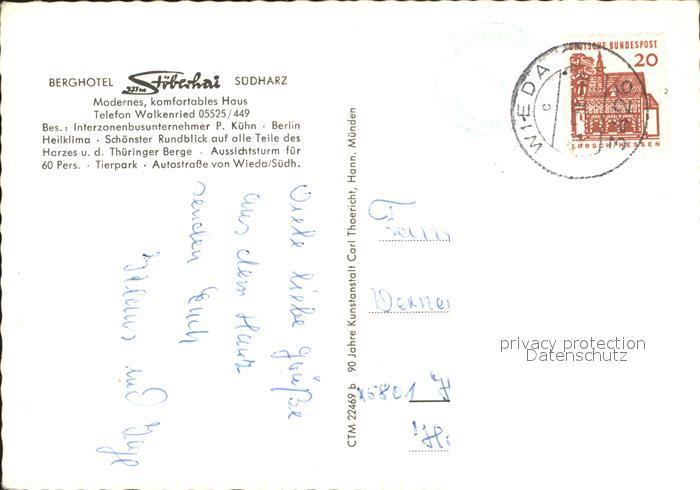 BERGHOTEL Stöberhai SÜDHARZ
Modernes, komfortables Haus
Telefon Walkenried 05525/449
Bes.: Interzonenbusunternehmer P. Kühn · Berlin
Heilklima · Schönster Rundblick auf alle Teile des
Harzes u. d. Thüringer Berge · Aussichtsturm für
60 Pers. · Tierpark · Autostraße von Wieda/Südh.
Viele liebe Grüße
aus dem Harz
senden Euch
Klaus und
CTM 22469 b 90 Jahre Kunstanstalt Carl Thoericht, Hann. Münden
WIEDA
DEUTSCHE BUNDESPOST
20
LORSCH/HESSEN
Fam
Werner
5801 H
privacy protection
Datenschutz